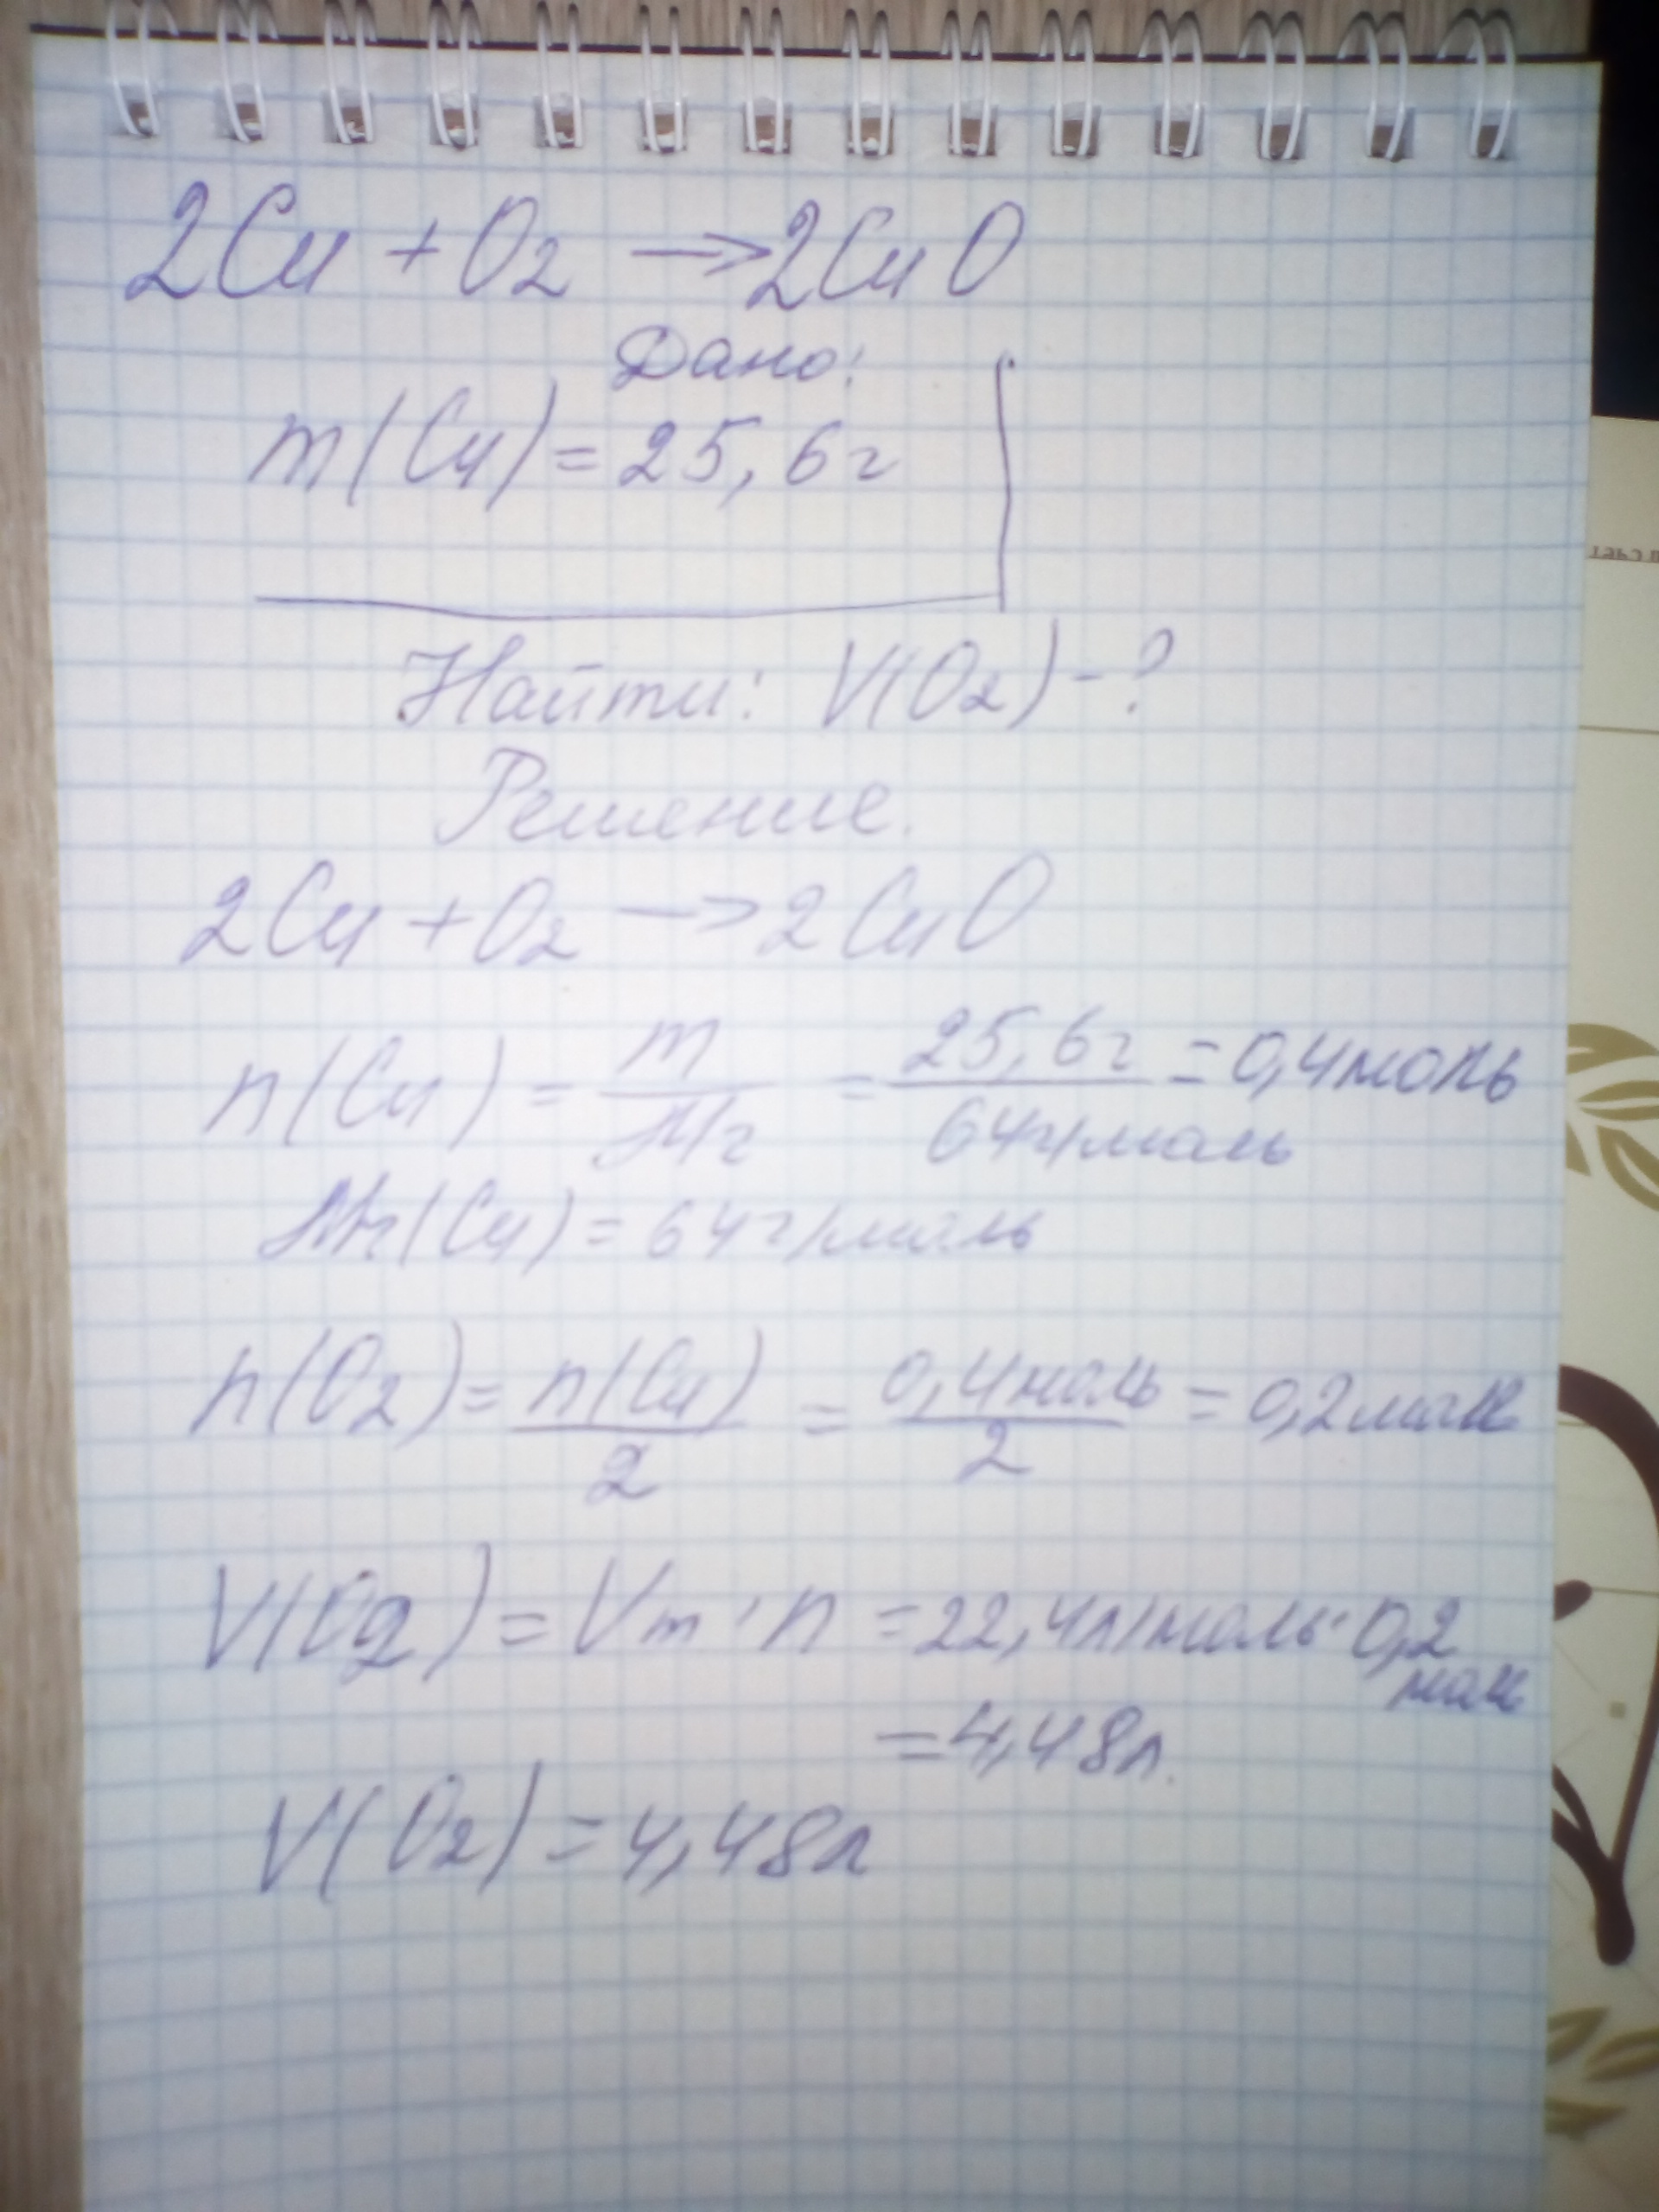 2Cu + O2 → 2CuO
Дано:
m(Cu) = 25,6г
Найти: V(O2) - ?
Решение.
2Cu + O2 → 2CuO
n(Cu) = m/Mr = 25,6г/64г/моль = 0,4моль
Mr(Cu) = 64г/моль
n(O2) = n(Cu)/2 = 0,4моль/2 = 0,2моль
V(O2) = Vm · n = 22,4л/моль · 0,2
моль
= 4,48л.
V(O2) = 4,48л